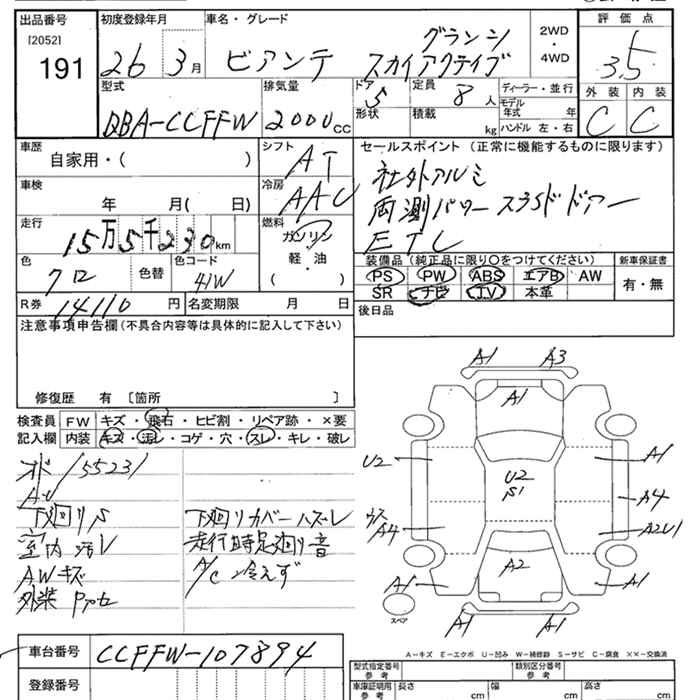 出品番号 初度登録年月 車名・グレード 2WD ・ 4WD 評価点
[2052] 191 26 3月 ビアンテ グランツ スカイアクティブ 3.5
型式 排気量 ドア 定員 ディーラー・並行 外装 内装
DBA-CCFFW 2000cc 5 8人 モデル年式 年 C C
形状 積載 kg ハンドル 左・右
車歴 自家用・( ) シフト AT セールスポイント (正常に機能するものに限ります)
車検 年 月( 日) 冷房 AAC 社外アルミ
両測パワースライドドアー
走行 15万5千230km 燃料 ガソリン・軽・油 ( ) ETC
色 クロ 色替 色コード 41W
装備品 (純正品に限り○をつけてください) 新車保証書
PS PW ABS エアB AW 有・無
SR ナビ TV 本革
R券 14110円 名変期限 月 日 後日品
注意事項申告欄(不具合内容等は具体的に記入して下さい)
修復歴 有 [箇所 ]
検査員 FW キズ・飛石・ヒビ割・リペア跡・×要
記入欄 内装 キズ・汚レ・コゲ・穴・スレ・キレ・破レ
オド155231
下廻りS 下廻りカバーハズレ
室内汚レ 走行時足廻り音
AWキズ A/C冷えず
外装
A1 A3
A1
U2 U2 S1 A1
A4
A4 A2U1
A2
A1 A1
スペア A1 A1
A-キズ E-エクボ U-凹み W-補修跡 S-サビ C-腐食 ××-交換済
車台番号 CCFFW-107894
登録番号
型式指定番号 参考 類別区分番号 参考
車庫証明用 参考 長さ cm 幅 cm 高さ cm